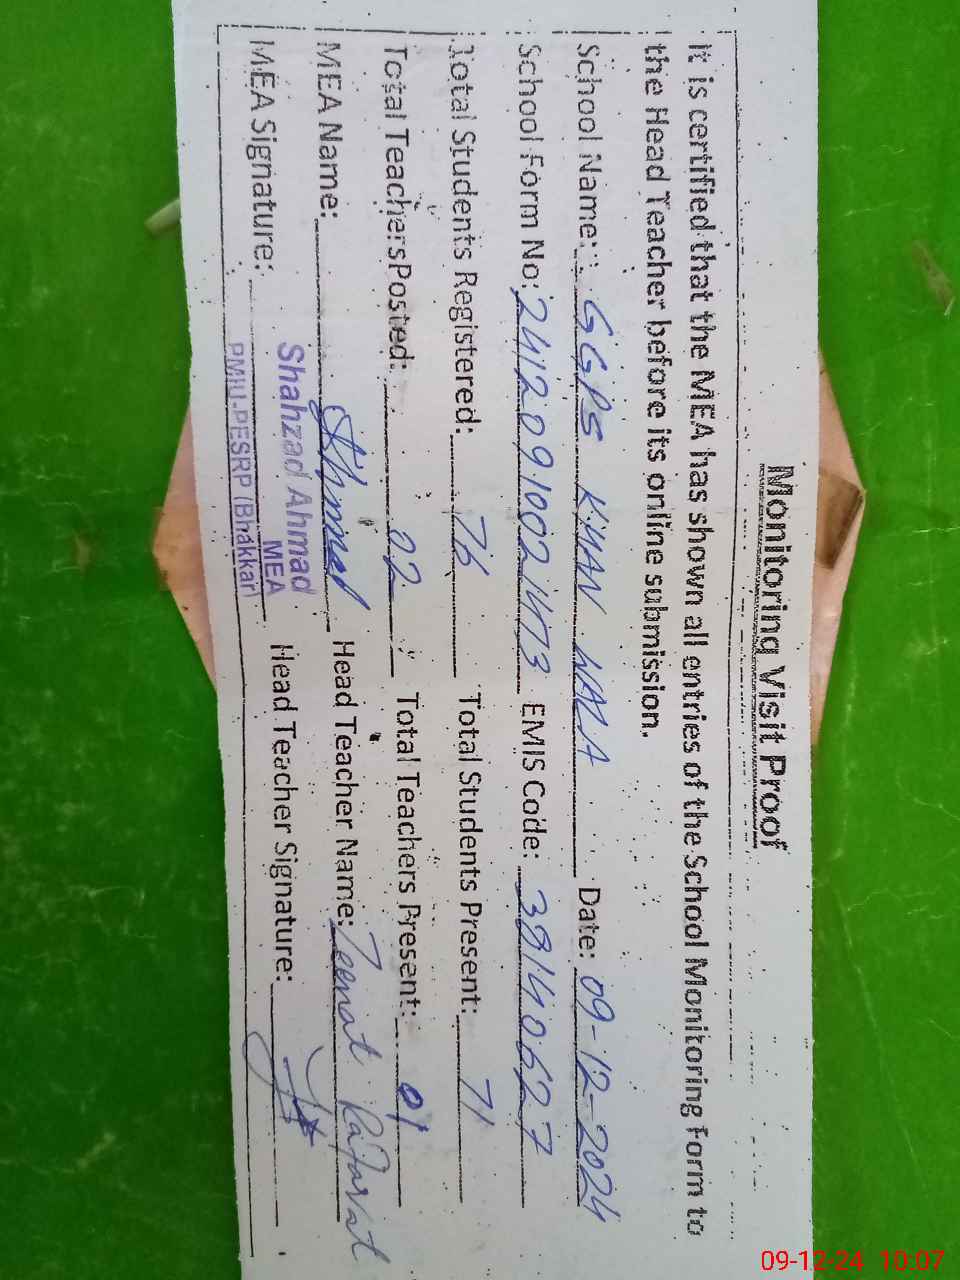 Monitoring Visit Proof
It is certified that the MEA has shown all entries of the School Monitoring Form to
the Head Teacher before its online submission.
School Name: GGPS KHAN WALA Date: 09-12-2024
School Form No: 24120910021473 EMIS Code: 38140627
Total Students Registered: 76 Total Students Present: 71
Total TeachersPosted: 02 Total Teachers Present: 01
MEA Name: Ahmad Head Teacher Name: Zeenat
MEA Signature: Head Teacher Signature:
Shahzad Ahmad
MEA
PMIU-PESRP (Bhakkar)
09-12-24 10:07